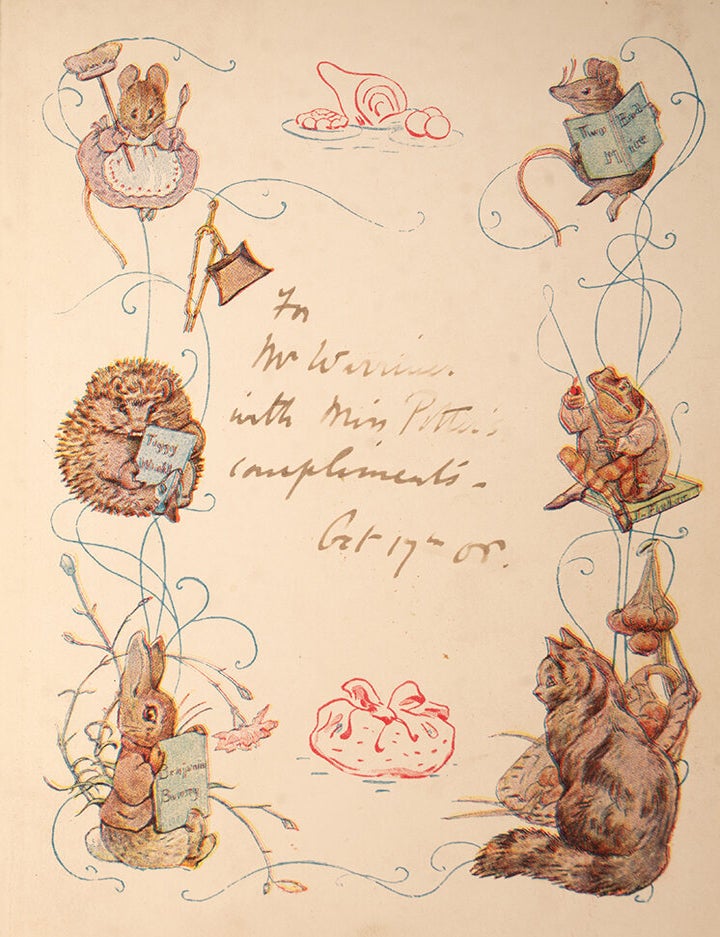 Two Bad
Mice
For
Mr
with Miss Potter's
compliments -
Oct 17th 08.
Tiggy
Winkle
Benjamin
Bunny